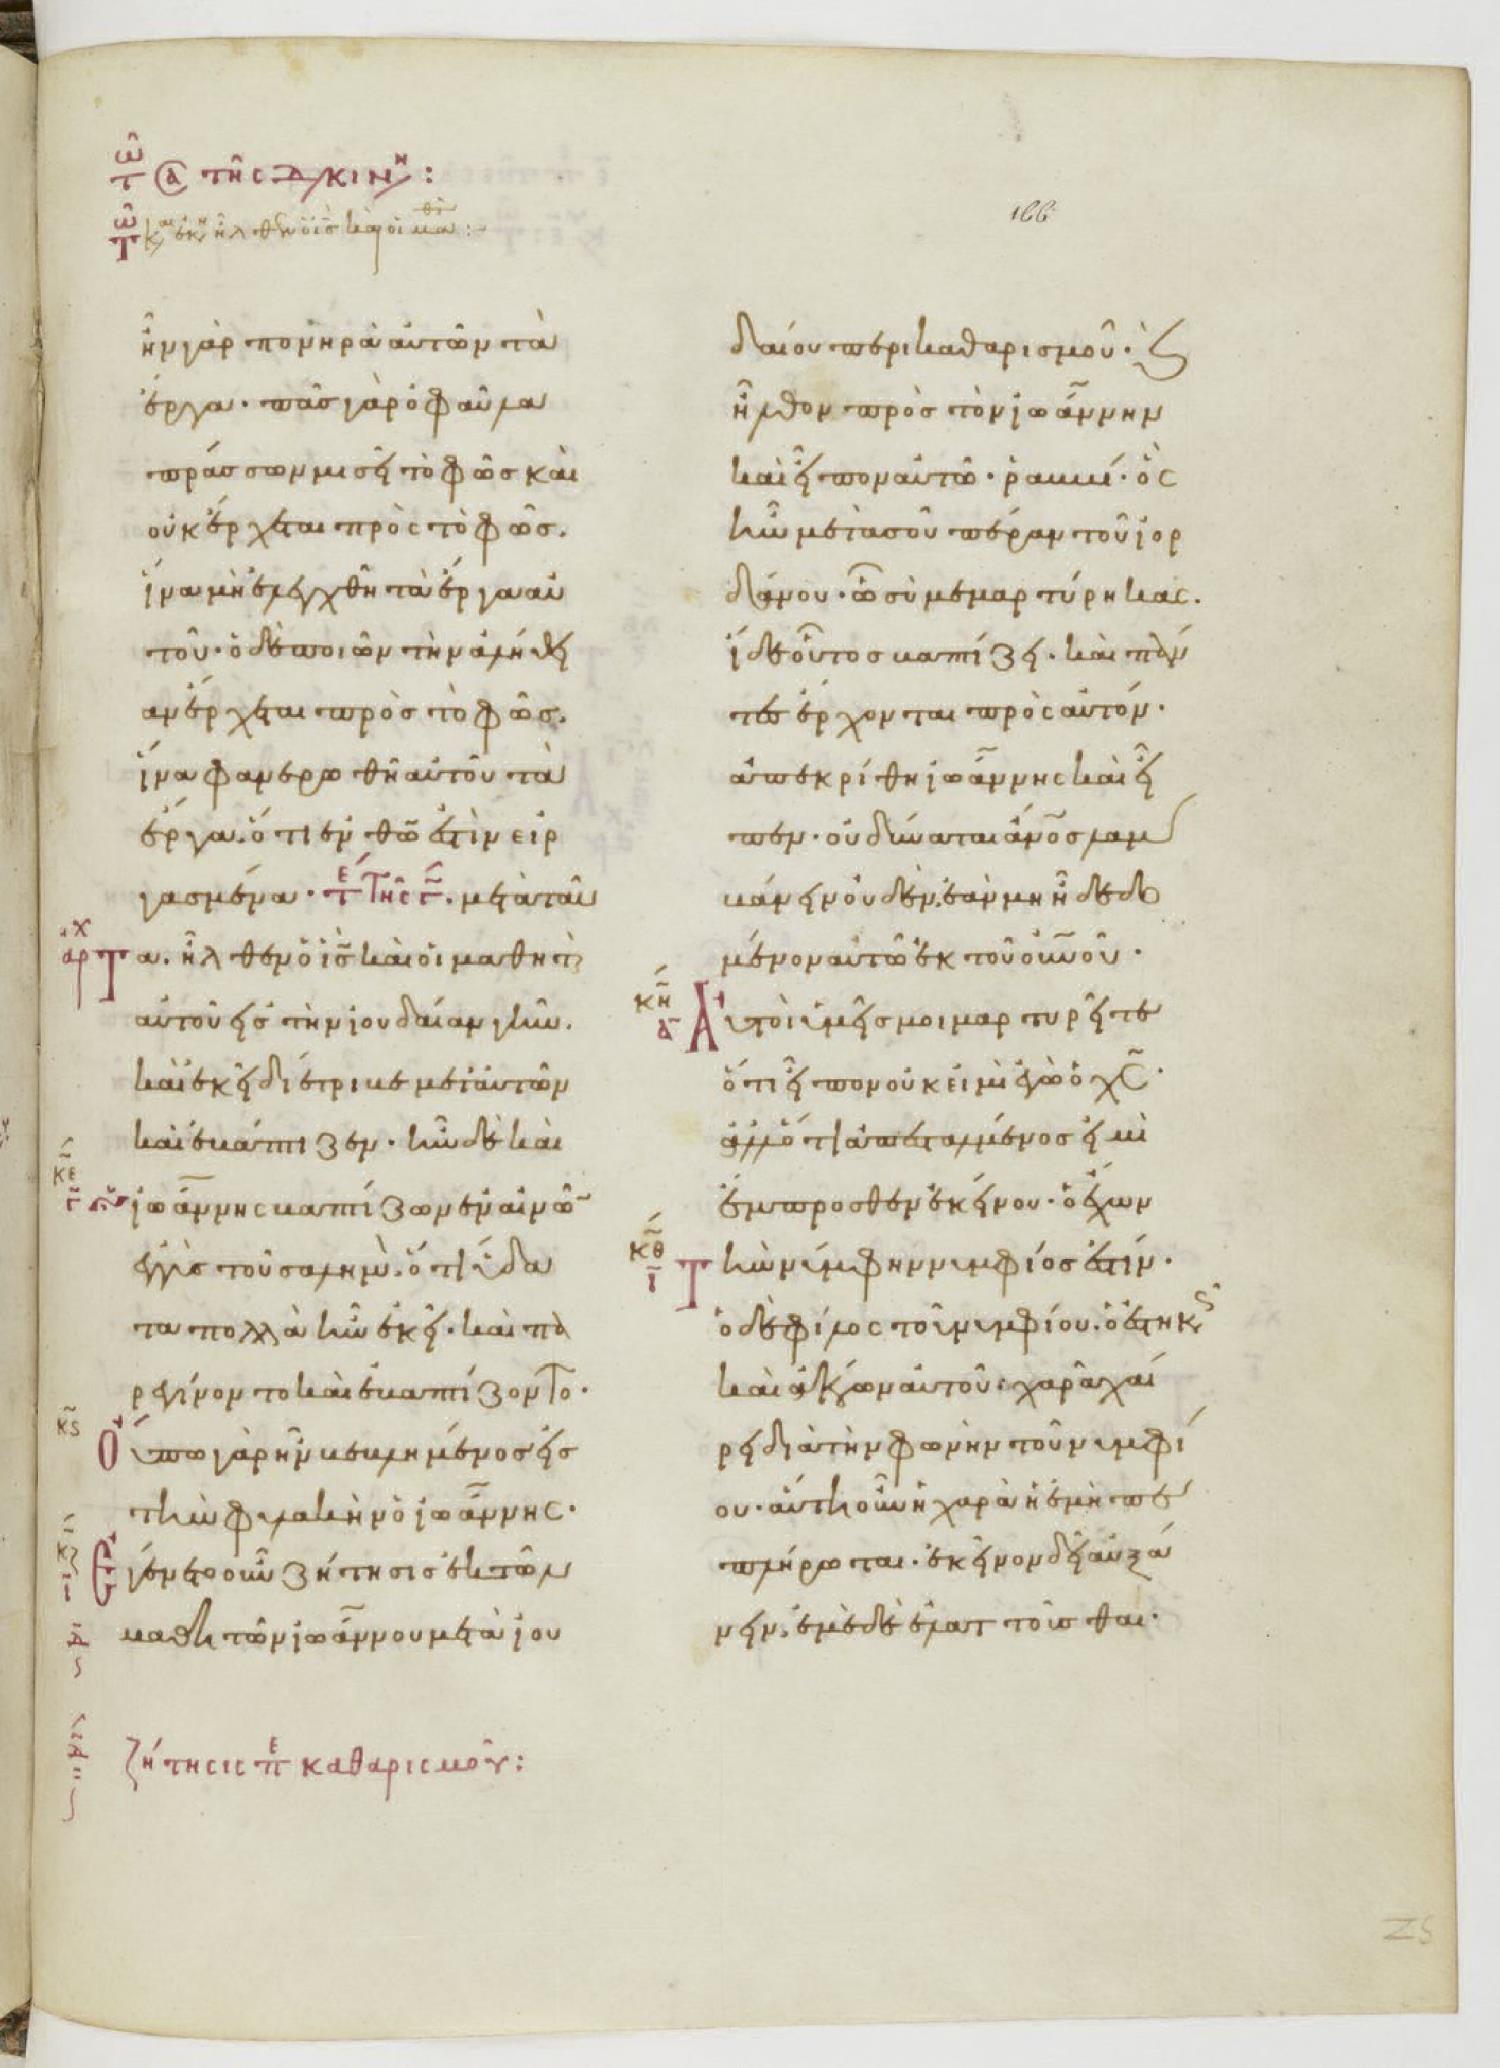 τῶ α τῆς διακινη:
τῶ κ ἐκ ἦλθεν ὁ ις καὶ οἱ μαθ:
166
ἦν γὰρ πονηρὰ αὐτῶν τὰ
ἔργα. πᾶς γὰρ ὁ φαῦλα
πράσσων μισεῖ τὸ φῶς καὶ
οὐκ ἔρχεται πρὸς τὸ φῶς.
ἵνα μὴ ἐλεγχθῆ τὰ ἔργα αὐ
τοῦ. ὁ δὲ ποιῶν τὴν ἀλήθει
αν ἔρχεται πρὸς τὸ φῶς.
ἵνα φανερωθῆ αὐτοῦ τὰ
ἔργα. ὅτι ἐν θῶ ἐστὶν εἰρ
γασμένα. τε τῆς γ. μετὰ ταῦ
αρχ
Τα. ἦλθεν ὁ ις καὶ οἱ μαθηταὶ
αὐτοῦ εἰς τὴν ἰουδαίαν γῆν.
καὶ ἐκεῖ διέτριβε μετ' αὐτῶν
καὶ ἐβάπτιζεν. ἦν δὲ καὶ
κε
γ ἰωάννης βαπτίζων ἐν αἰνῶν
ἐγγὺς τοῦ σαλήμ. ὅτι ὕδα
τα πολλὰ ἦν ἐκεῖ. καὶ πα
ρεγίνοντο καὶ ἐβαπτίζοντο.
κς
Οὔπω γὰρ ἦν βεβλημένος εἰς
τὴν φυλακὴν ὁ ἰωάννης.
κζ
ι
Ἐγένετο οὖν ζήτησις ἐκ τῶν
μαθητῶν ἰωάννου μετὰ ἰου
ζήτησις πε καθαρισμοῦ:
δαίου περὶ καθαρισμοῦ. καὶ
ἦλθον πρὸς τὸν ἰωάννην
καὶ εἶπον αὐτῶ. ῥαββί. ὃς
ἦν μετὰ σοῦ πέραν τοῦ ἰορ
δάνου. ὧ σὺ μεμαρτύρηκας.
ἴδε οὗτος βαπτίζει. καὶ πάν
τες ἔρχονται πρὸς αὐτόν.
ἀπεκρίθη ἰωάννης καὶ εἶ
πεν. οὐ δύναται ἀνος λαμ
βάνειν οὐδέν. ἐὰν μὴ ἦ δεδο
μένον αὐτῶ ἐκ τοῦ οὐνοῦ.
κη
α
Αὐτοὶ ὑμεῖς μοι μαρτυρεῖτε
ὅτι εἶπον οὐκ εἰμὶ ἐγὼ ὁ χς.
ἀλλ' ὅτι ἀπεσταλμένος εἰμὶ
ἔμπροσθεν ἐκείνου. ὁ ἔχων
κθ
ι
Τὴν νύμφην νυμφίος ἐστίν.
ὁ δὲ φίλος τοῦ νυμφίου. ὁ ἑστηκὼς
καὶ ἀκούων αὐτοῦ. χαρᾶ χαί
ρει διὰ τὴν φωνὴν τοῦ νυμφί
ου. αὕτη οὖν ἡ χαρὰ ἡ ἐμὴ πε
πλήρωται. ἐκεῖνον δεῖ αὐξά
νειν. ἐμὲ δὲ ἐλαττοῦσθαι.